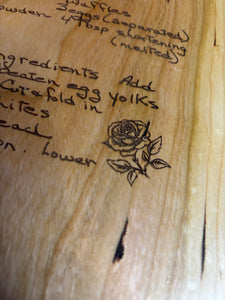 Waffles
3eggs (separated)
powder- 4 Tbsp shortening
(melted)
ngredients Add
Beaten egg yolks
Cut & fold in
hites
ead
on. Lower